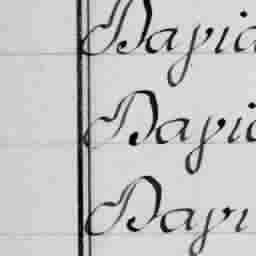 Dayid
Dayi
Dayi